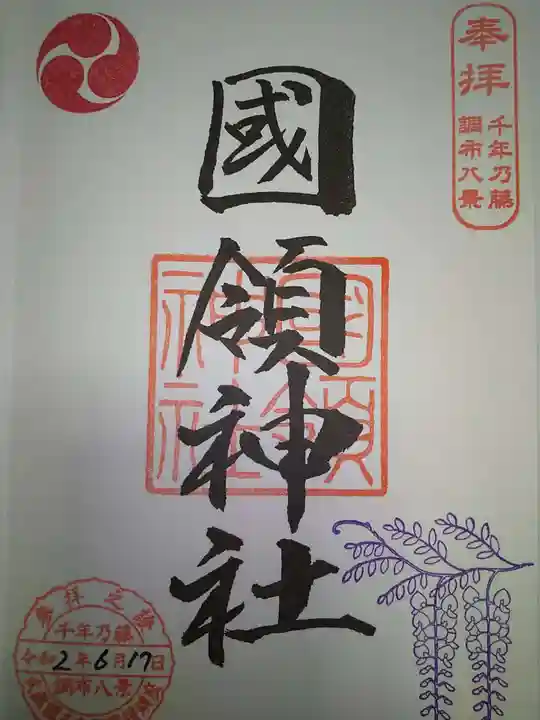 奉拝
千年乃藤
調布八景
國領神社
國領神社
参拝之証
千年乃藤
令和2年6月17日
調布八景